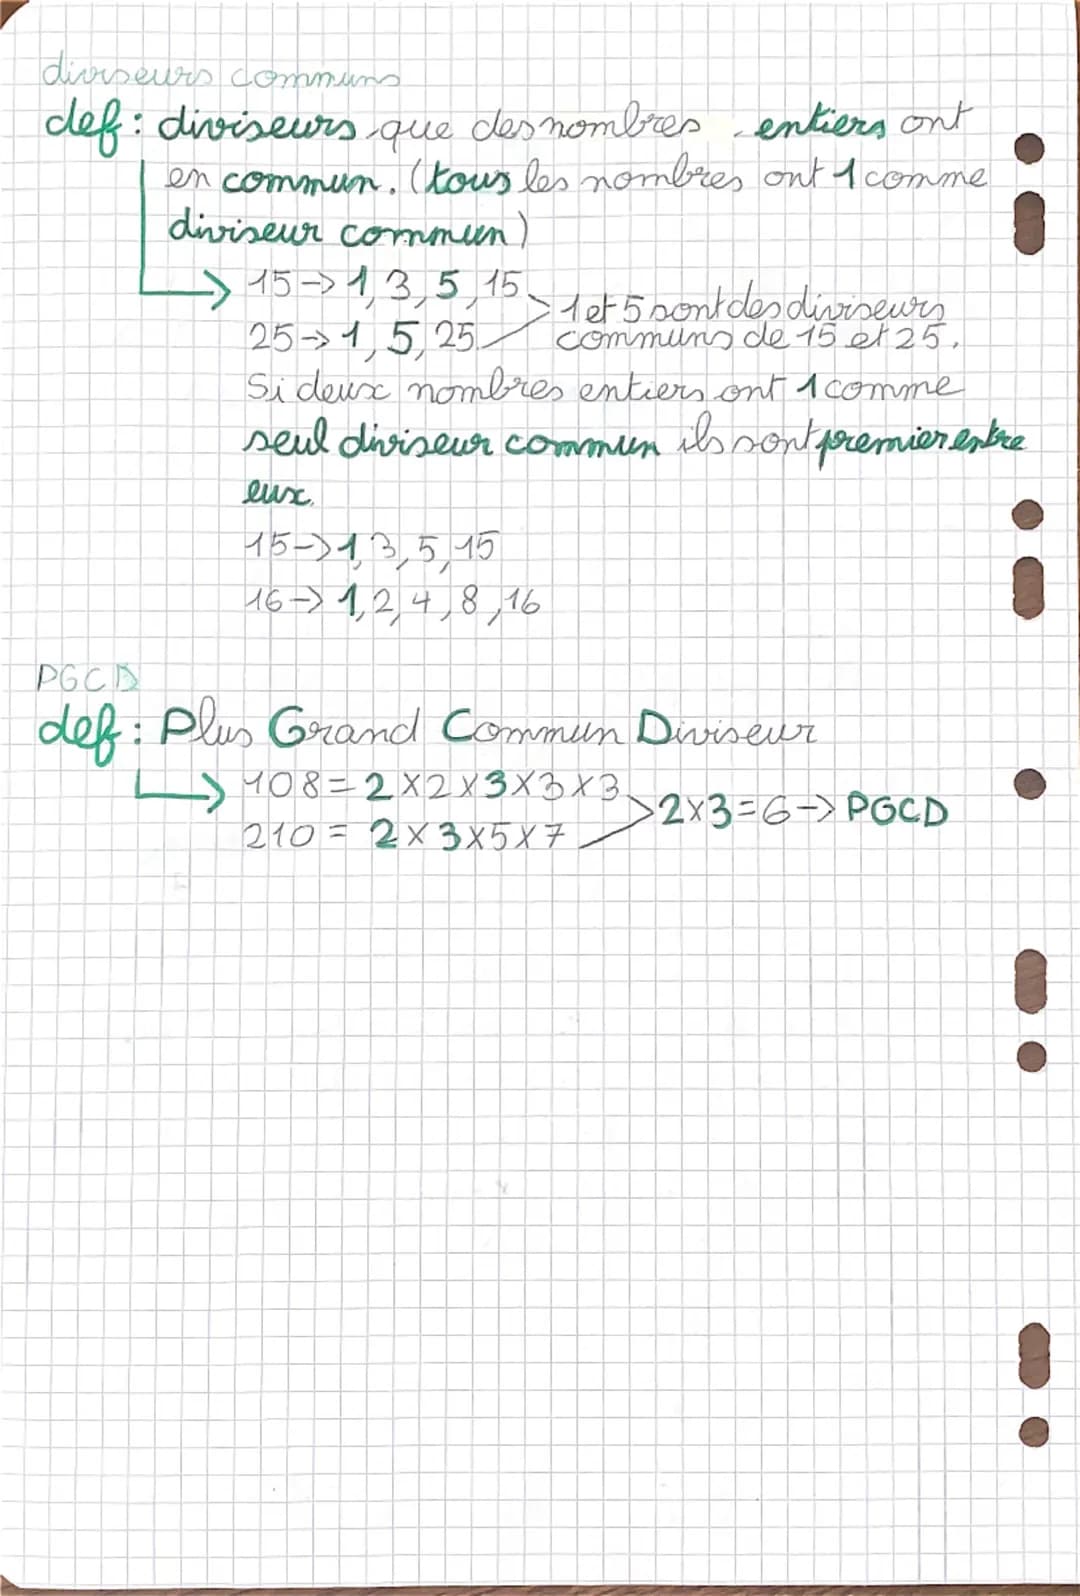 diviseurs communs
def : diviseurs que des nombres entiers ont
en commun. (tous les nombres ont 1 comme
diviseur commun)
15 -> 1, 3, 5, 15
25 -> 1, 5, 25
1 et 5 sont des diviseurs
communs de 15 et 25.
Si deux nombres entiers ont 1 comme
seul diviseur commun ils sont premier entre
eux.
15 -> 1, 3, 5, 15
16 -> 1, 2, 4, 8, 16
PGCD
def : Plus Grand Commun Diviseur
108 = 2 x 2 x 3 x 3 x 3
210 = 2 x 3 x 5 x 7
2 x 3 = 6 -> PGCD